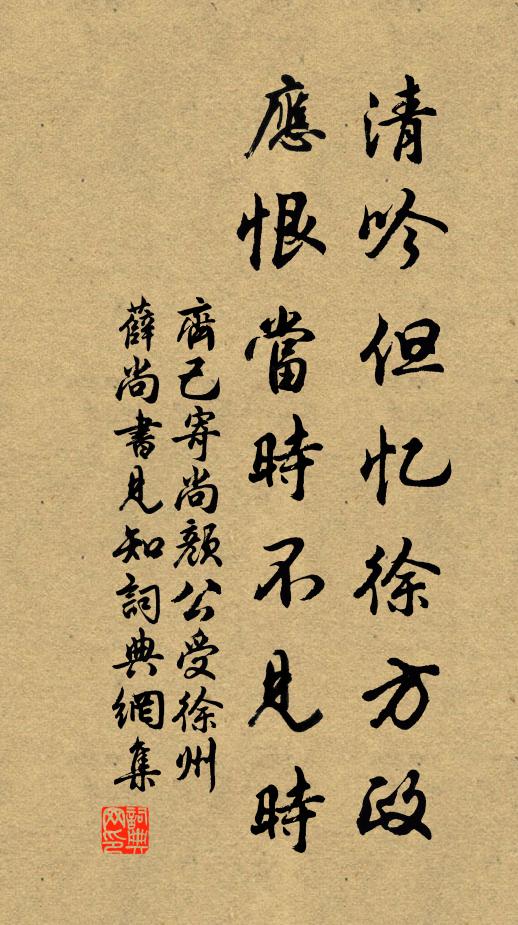 清吟但忆徐方政
應恨當時不見時
齊己寄尚顔公受徐州
薛尚書見知詞典網集
詞典网印